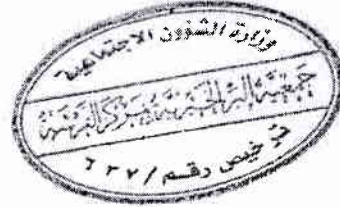 وزارة الشؤون الاجتماعية
جمعية البر الخيرية بمركز البرهة
ترخيص رقم / ٦٣٧